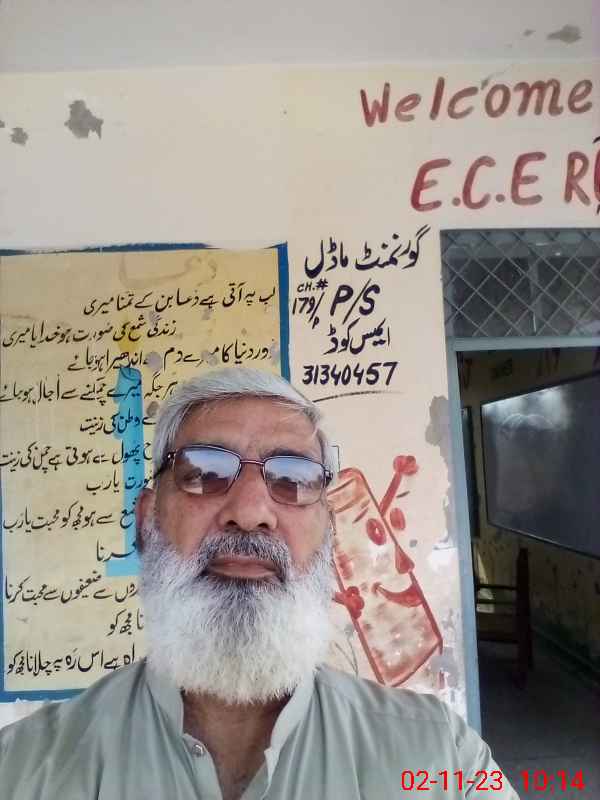 Welcome
E.C.E R
گورنمنٹ ماڈل
CH.#
179/P P/S
ایمس کوڈ
31340457
لب پہ آتی ہے دعا بن کے تمنا میری
زندگی شمع کی صورت ہو خدایا میری
دور دنیا کا مرے دم اندھیرا ہو جائے
ہر جگہ میرے چمکنے سے اُجالا ہو جائے
وطن کی زینت
پھول سے ہوتی ہے چمن کی زینت
صورت یارب
شمع سے ہو مجھ کو محبت یارب
کرنا
سے ضعیفوں سے محبت کرنا
مجھ کو
راہ ہے اس رہ پہ چلانا مجھ کو
02-11-23 10:14